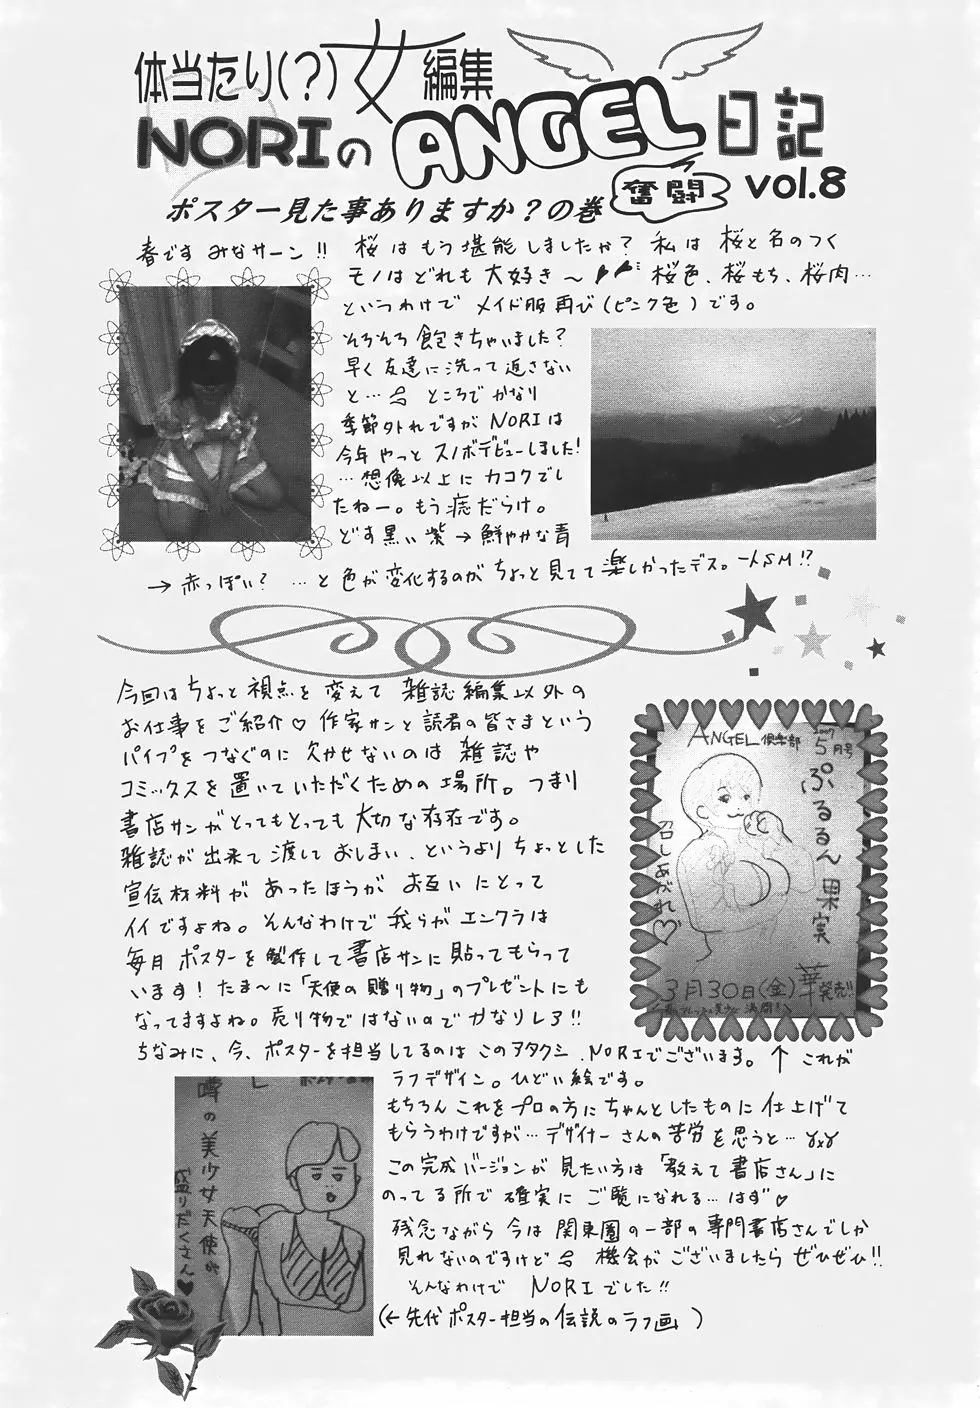 体当たり(?)女編集
NORIのANGEL日記
奮闘
vol.8
ポスター見た事ありますか？の巻
春です みなサーン!! 桜はもう堪能しましたか？ 私は 桜と名のつく
モノはどれも大好き〜 桜色、桜もち、桜肉…
というわけで メイド服再び(ピンク色)です。
そろそろ飽きちゃいました？
早く友達に洗って返さない
と… ところでかなり
季節外れですが NORIは
今年やっと スノボデビューしました!
…想像以上にカコクでし
たねー。もう痣だらけ。
どす黒い紫→鮮やかな青
→赤っぽい？ …と色が変化するのがちょっと見てて楽しかったデス。一人SM!?
今回はちょっと視点を変えて 雑誌編集以外の
お仕事をご紹介♡ 作家サンと読者の皆さまという
パイプをつなぐのに欠かせないのは 雑誌や
コミックスを置いていただくための場所。つまり
書店サンがとってもとっても大切な存在です。
雑誌が出来て渡しておしまい、というよりちょっとした
宣伝材料があったほうが お互いにとって
イイですよね。そんなわけで我らがエンクラは
毎月ポスターを製作して書店サンに貼ってもらって
います！たま〜に「天使の贈り物」のプレゼントにも
なってますよね。売り物ではないのでかなりレア!!
ちなみに、今、ポスターを担当してるのはこのアタクシ、NORIでございます。↑これが
ラフデザイン。ひどい絵です。
もちろんこれをプロの方にちゃんとしたものに仕上げて
もらうわけですが…デザイナーさんの苦労を思うと…
この完成バージョンが見たい方は「教えて書店さん」に
のってる所で確実にご覧になれる…はず♡
残念ながら今は関東圏の一部の専門書店さんでしか
見れないのですけど 機会がございましたらぜひぜひ!!
そんなわけで NORIでした!!
(←先代ポスター担当の伝説のラフ画)
ANGEL倶楽部
5月号
ぷるるん果実
召しあがれ♡
3月30日(金)
発売!!
噂の美少女天使が
盛りだくさん♥